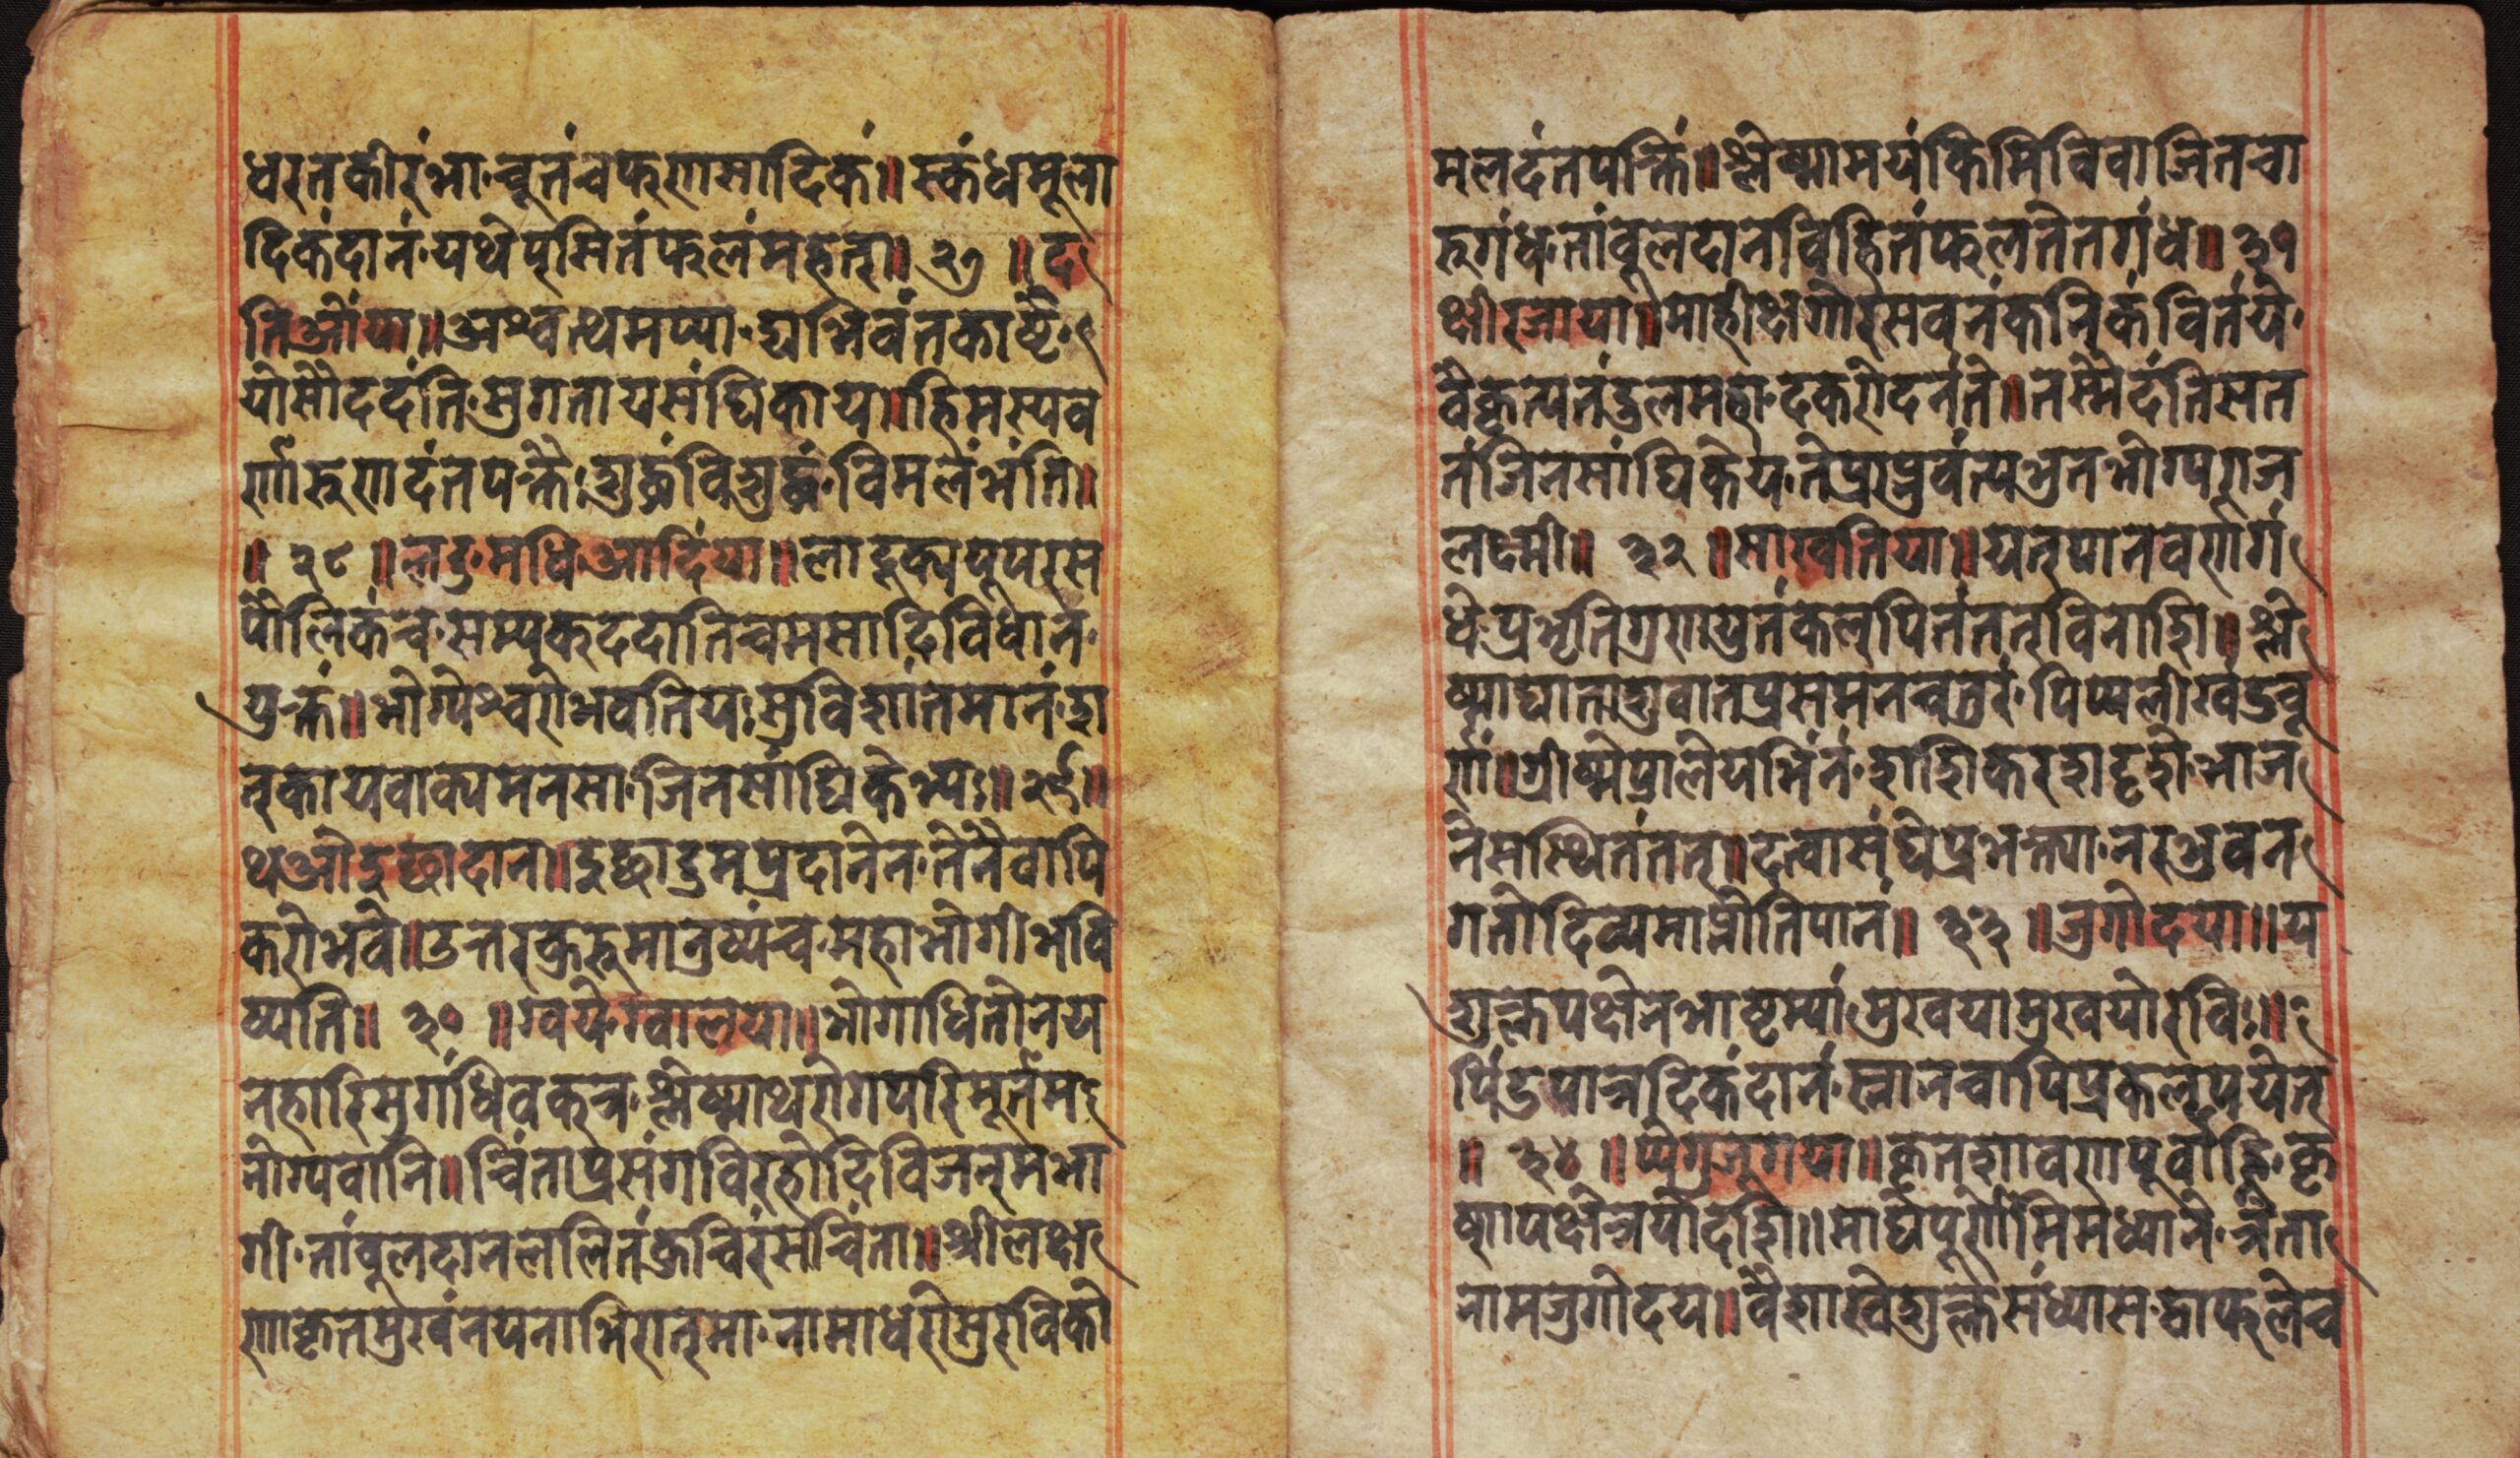 धरनकीरंभा·चूतंचफरुणसादिकं॥स्कंधमूला
दिकंदानं·यथेप्सितंफलंमहत्॥ २७ ॥द
तिओंया॥अश्वत्थमप्या·द्यभिवंतकाष्ठै·
योसौददंति·सुगतायसंघिकाय॥हिमस्यव
र्णारुणदंतपक्तै·शुद्धंविशुद्धं·विमलंभंति॥
॥ २८ ॥लडुमधिआदिंया॥लाडूकयपूपरस
पोलिकंच·सम्पूकददातिचमसादिविधान·
युक्तं॥भोग्येश्वरोभवतियःसुविशांतमानंशा
नृकायवाक्यमनसा·जिनसांघिकेभ्यः॥२९॥
थओदुछादान॥दुछाद्रुमप्रदानेन·तेनैवापि
करोभवे॥उत्तरक्रुरुमानुष्यंच·महाभोगीभवि
ष्यति॥ ३० ॥ग्वय·ग्वालया॥भोगाधितोनय
नहारिसुगंधिवकत्र·श्लेष्माथरोगपरिमूर्तम
नोग्यवानि॥चिंताप्रसंगविरहोदिविजनुमभा
गी·तांबुलदानललितंक्रुचिरंसचिंता॥श्रीलक्ष
णाकृतमुखंनयनाभिरातमा·नामाधरोसुरविको
मलदंतपक्तिं॥श्लेष्मामयंकिमिविवाजितचा
रुगंध·तांबूलदानविहितंफलतेनगंध॥ ३१
क्षीरजाया॥माहीक्षगोरसवनंकनिकंवितंये·
वैकृत्यतंडुलमहो·दकरोदनंते॥तस्मैदंतिसत
तंजिनसांघिकेय·तेप्राप्नुवंत्यभुतभोग्यराज
लक्ष्मी॥ ३२ ॥साखतिया॥यत्पानवर्णागं
धे·प्रभृतिगुणयुतंकल्पितंतत्विनाशि॥श्ले
ष्माद्याताशुवातप्रसमनचतुरं·पिप्पलीखंडचू
र्णं॥ग्रीष्मेप्रालेयभिंनं·शशिकरशदृशे·भाज
नेसंस्थितंतत्॥दत्वासंघेप्रभक्त्या·नरभुवन
गतोदिव्यमाप्नोतिपानं॥ ३३ ॥जुगोदया॥य
शुक्लपक्षेनभाष्टम्यां·सुखयासुखयोरविः॥
पिंडपात्रदिकंदानं·स्नानचापिप्रकल्पयेत्
॥ ३४ ॥प्येगुजूगया॥कृतशावणपूर्वाह्नि·कृ
ष्णपक्षेत्रयोदशि॥माघेपूर्णमिमध्याने·त्रेता
नामजुगोदय॥वैशाखेशुक्लसंध्यास·द्वाफलेच